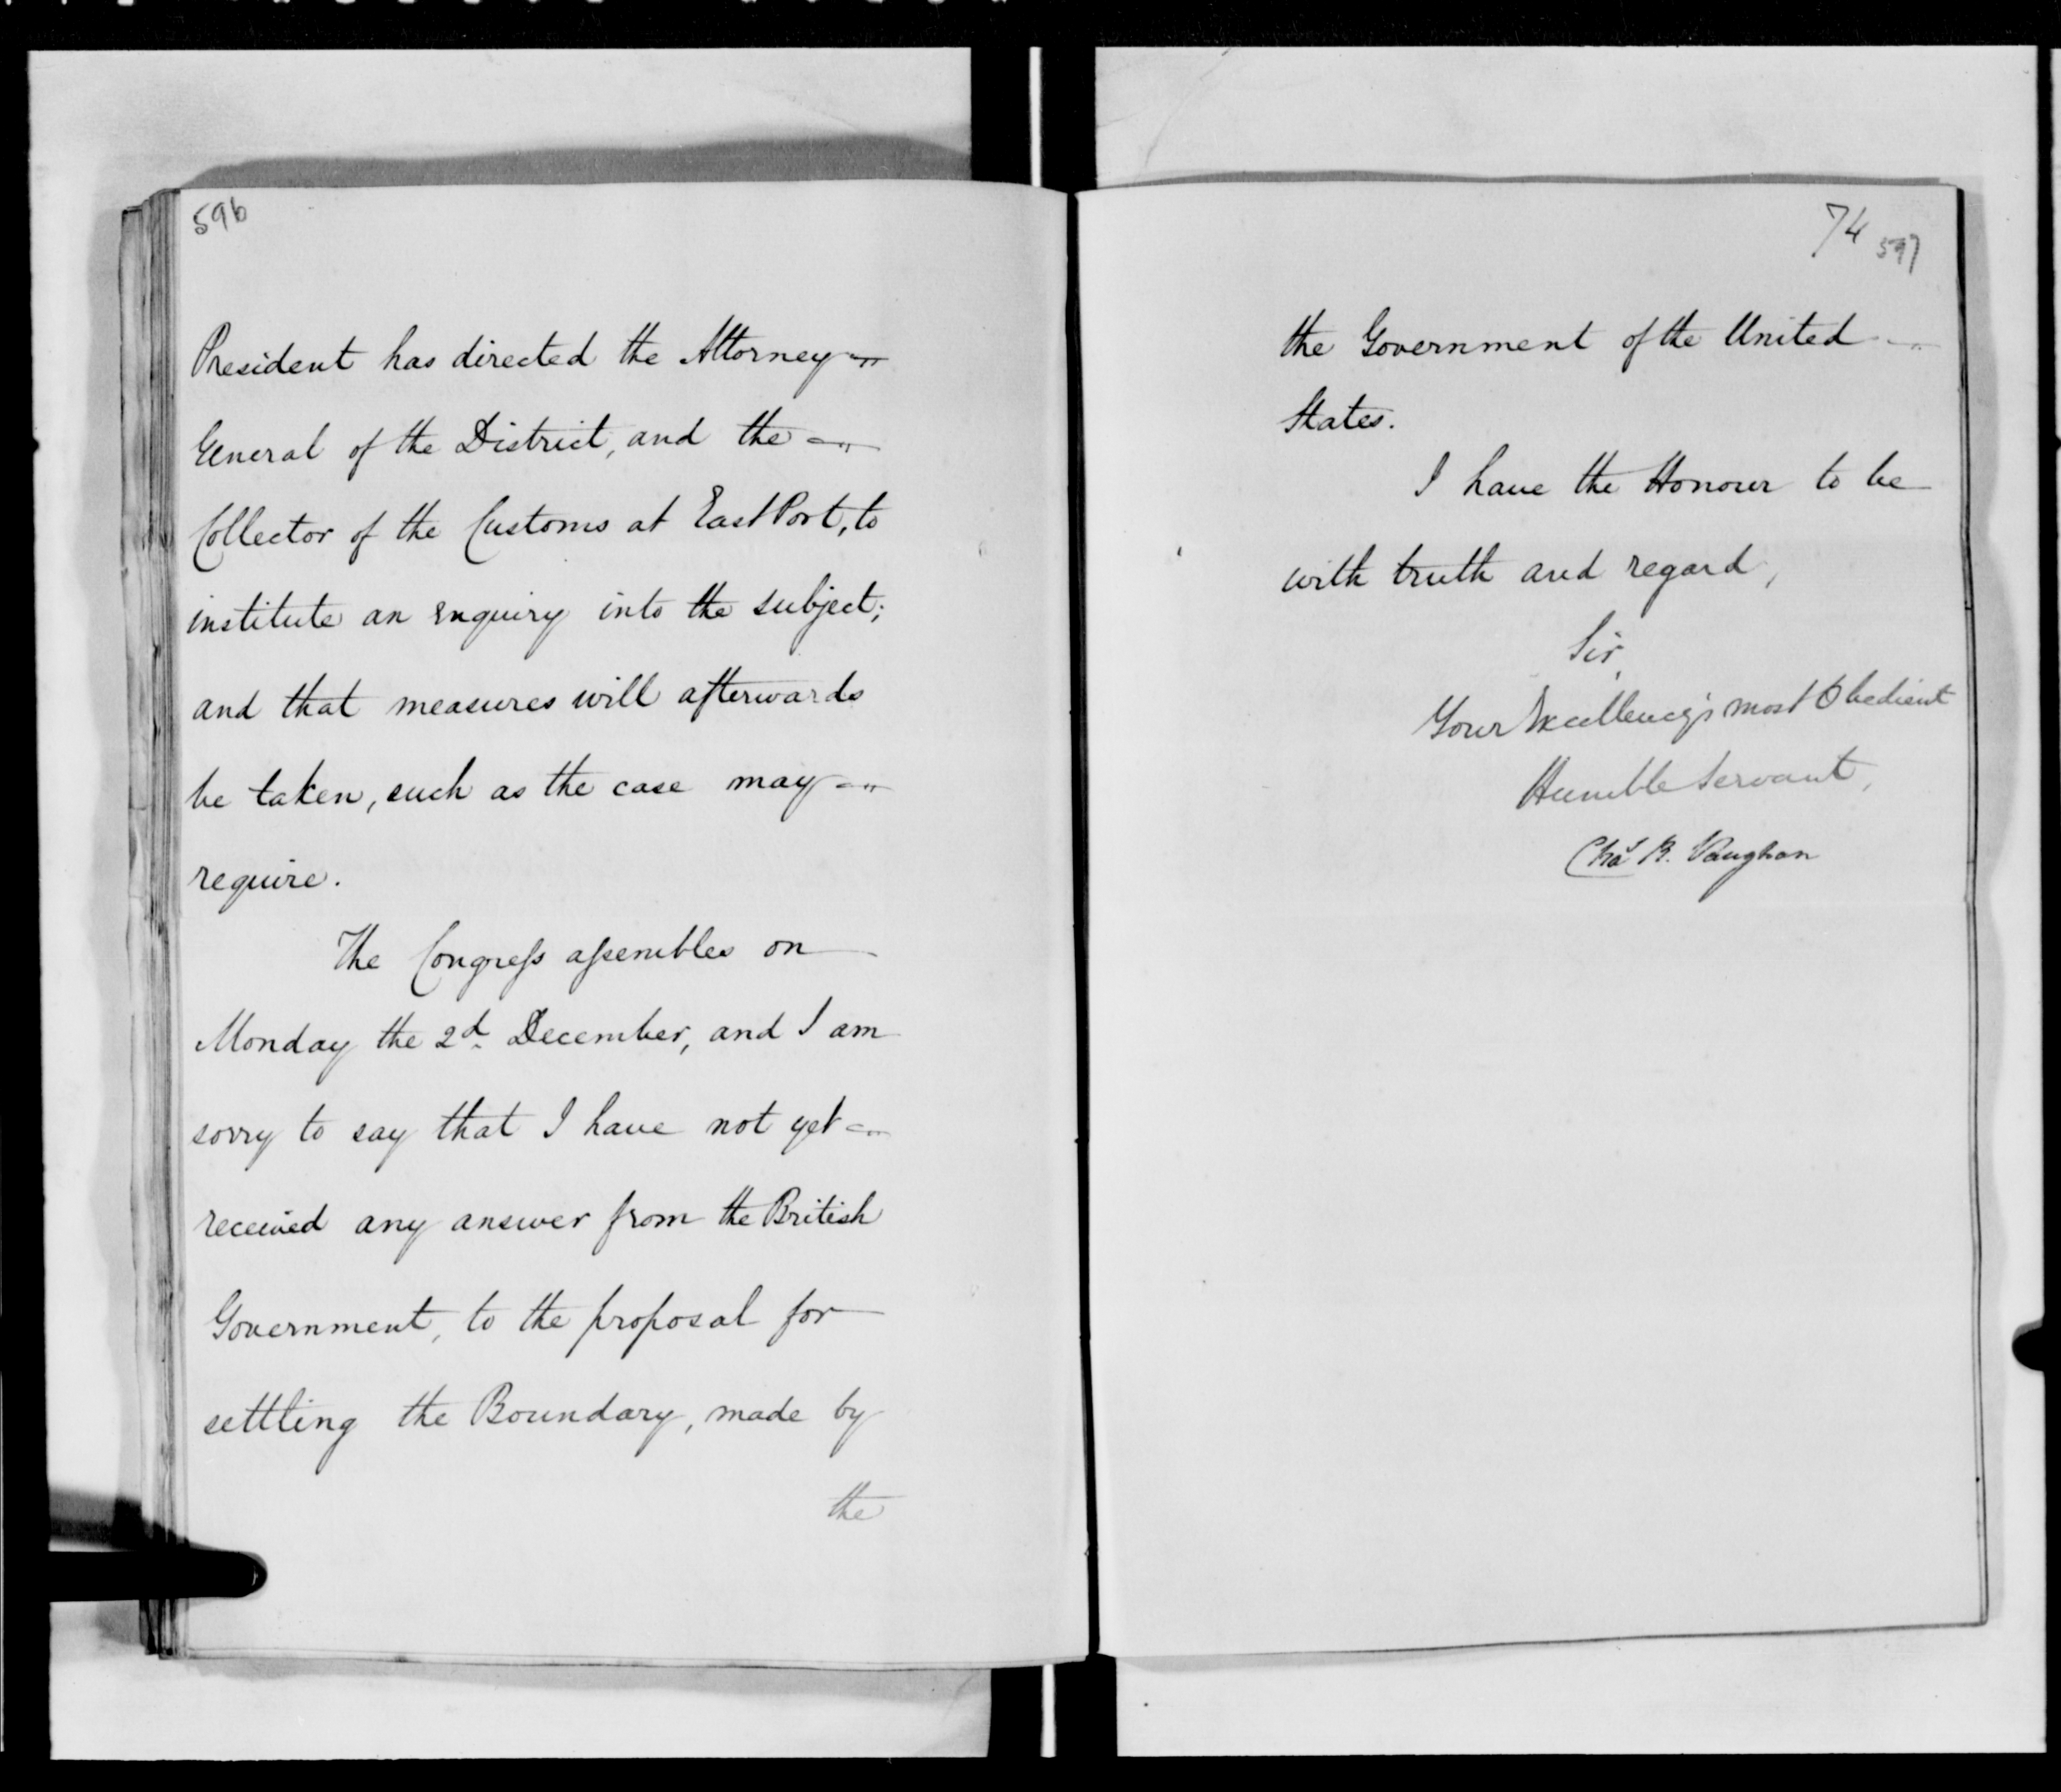 596
President has directed the Attorney
General of the District, and the
Collector of the Customs at East Port, to
institute an enquiry into the subject;
and that measures will afterwards
be taken, such as the case may
require.
The Congress assembles on
Monday the 2d December, and I am
sorry to say that I have not yet
received any answer from the British
Government, to the proposal for
settling the Boundary, made by
the
74 597
the Government of the United
States.
I have the Honour to be
with truth and regard,
Sir,
Your Excellency's most Obedient
Humble Servant,
Chas R. Vaughan